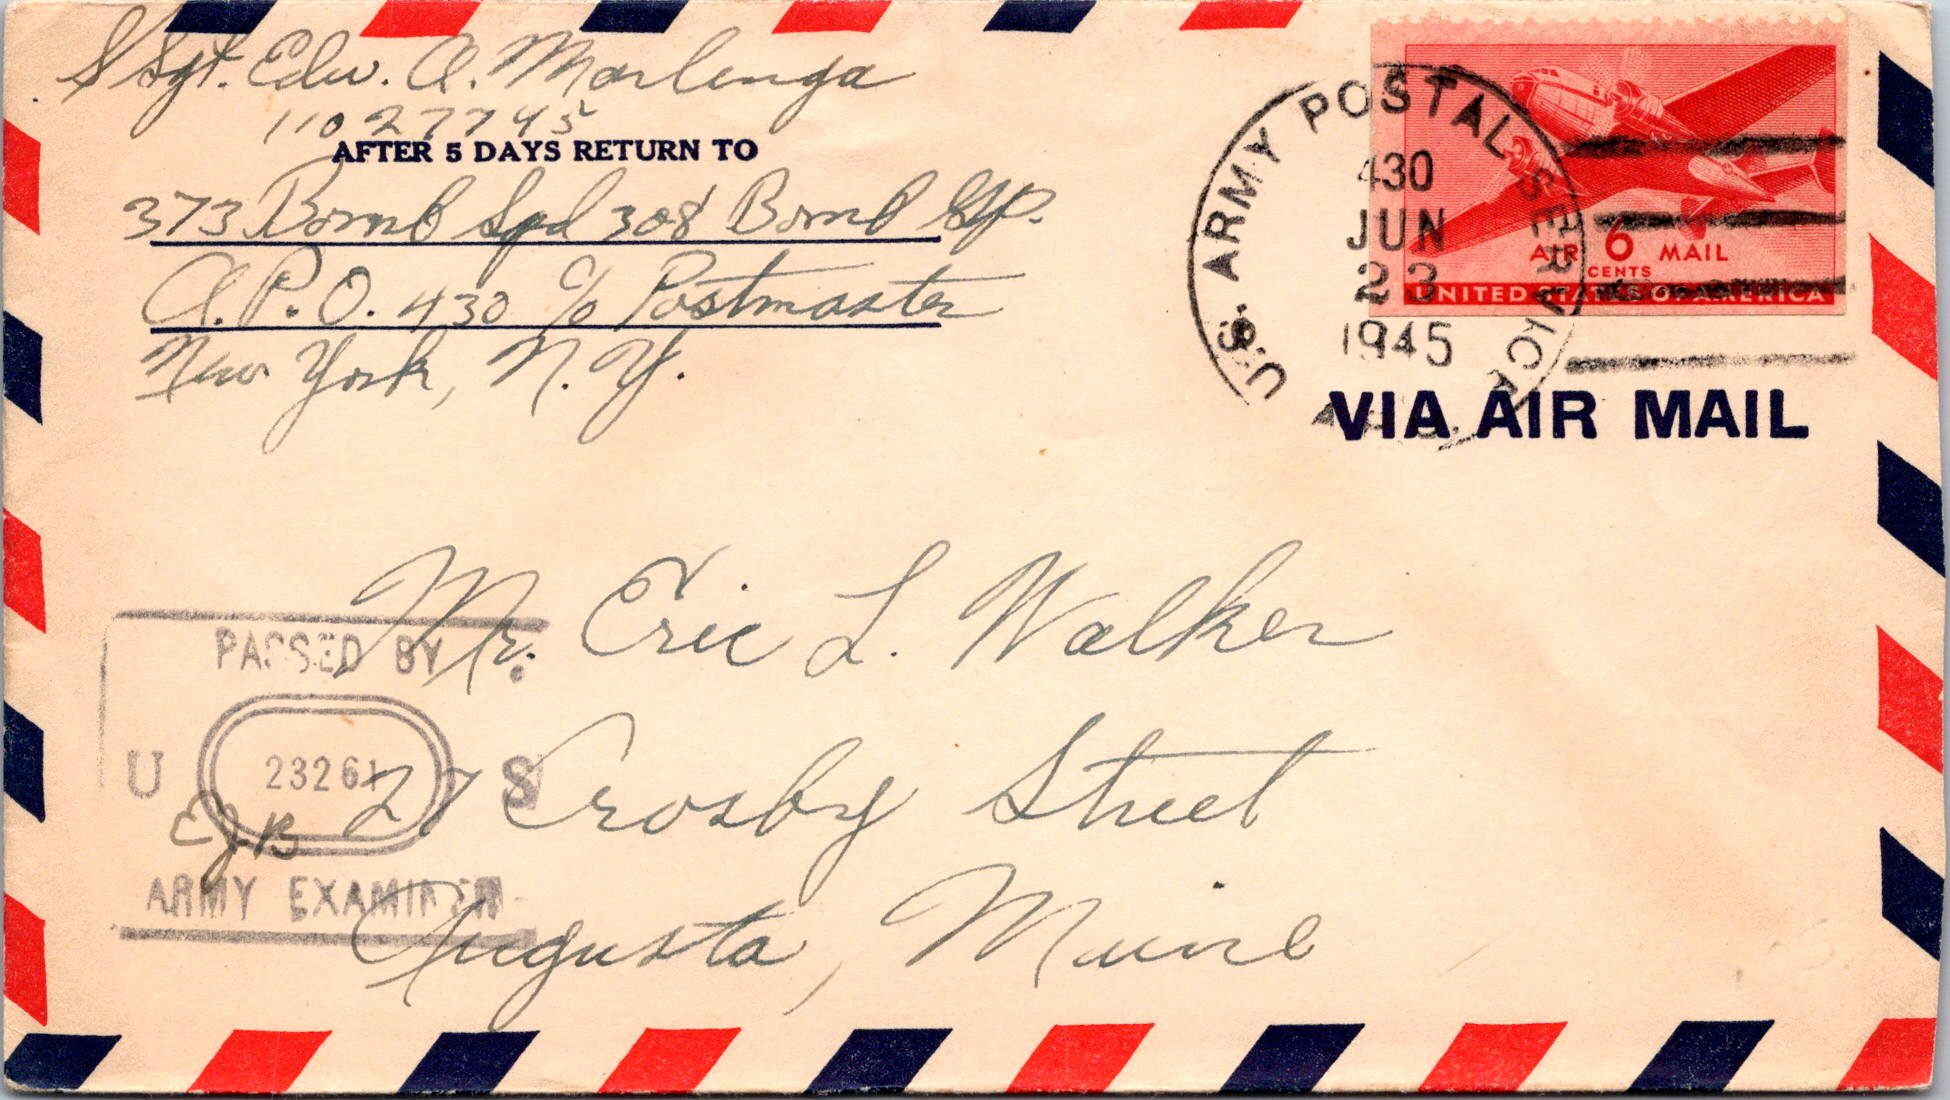 S/Sgt. Edw. A. Marlenga
11027795
AFTER 5 DAYS RETURN TO
373 Bomb Sqd 308 Bomb Gp.
A.P.O. 430 c/o Postmaster
New York, N.Y.
U.S. ARMY POSTAL SERVICE
430
JUN
23
1945
A.P.O.
AIR 6 MAIL
CENTS
UNITED STATES OF AMERICA
VIA AIR MAIL
Mr. Eric L. Walker
27 Crosby Street
Augusta, Maine
PASSED BY
U 23261 S
EJB
ARMY EXAMINER